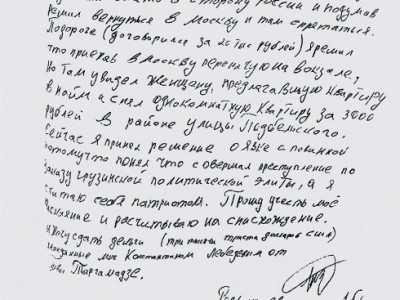 в сторону России и подумав
решил вернуться в Москву и там спрятаться.
По дороге (договорился за 20 тыс рублей) я решил
что приехав в Москву переночую на вокзале,
Но там увидел женщину, предлагавшую квартиру
в найм и снял однокомнатную квартиру за 3000
рублей в районе улицы Подбельского.
Сейчас я принял решение о явке с повинной
потому что понял что совершал преступление по
заказу грузинской политической элиты, а я
считаю себя патриотом. Прошу учесть моё
раскаяние и расчитываю на снисхождение.
Хочу сдать деньги (три тысячи триста долларов США)
переданные мне Константином Лебедевым от
Гиви Таргамадзе.